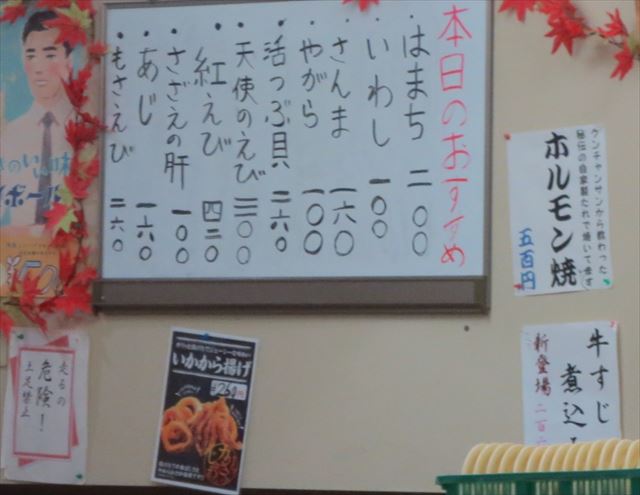 本日のおすすめ
・はまち 二〇〇
・いわし 一〇〇
・さんま 一六〇
・やがら 一〇〇
・活つぶ貝 二六〇
・天使のえび 三〇〇
・紅えび 四二〇
・さざえの肝 一〇〇
・あじ 一六〇
・もさえび 二六〇
ケンチャンサンから教わった
秘伝の自家製たれで焼いてます
ホルモン焼
五百円
牛すじ
煮込
新登場 二百
いかから揚げ
260
走るの
危険!
土足禁止